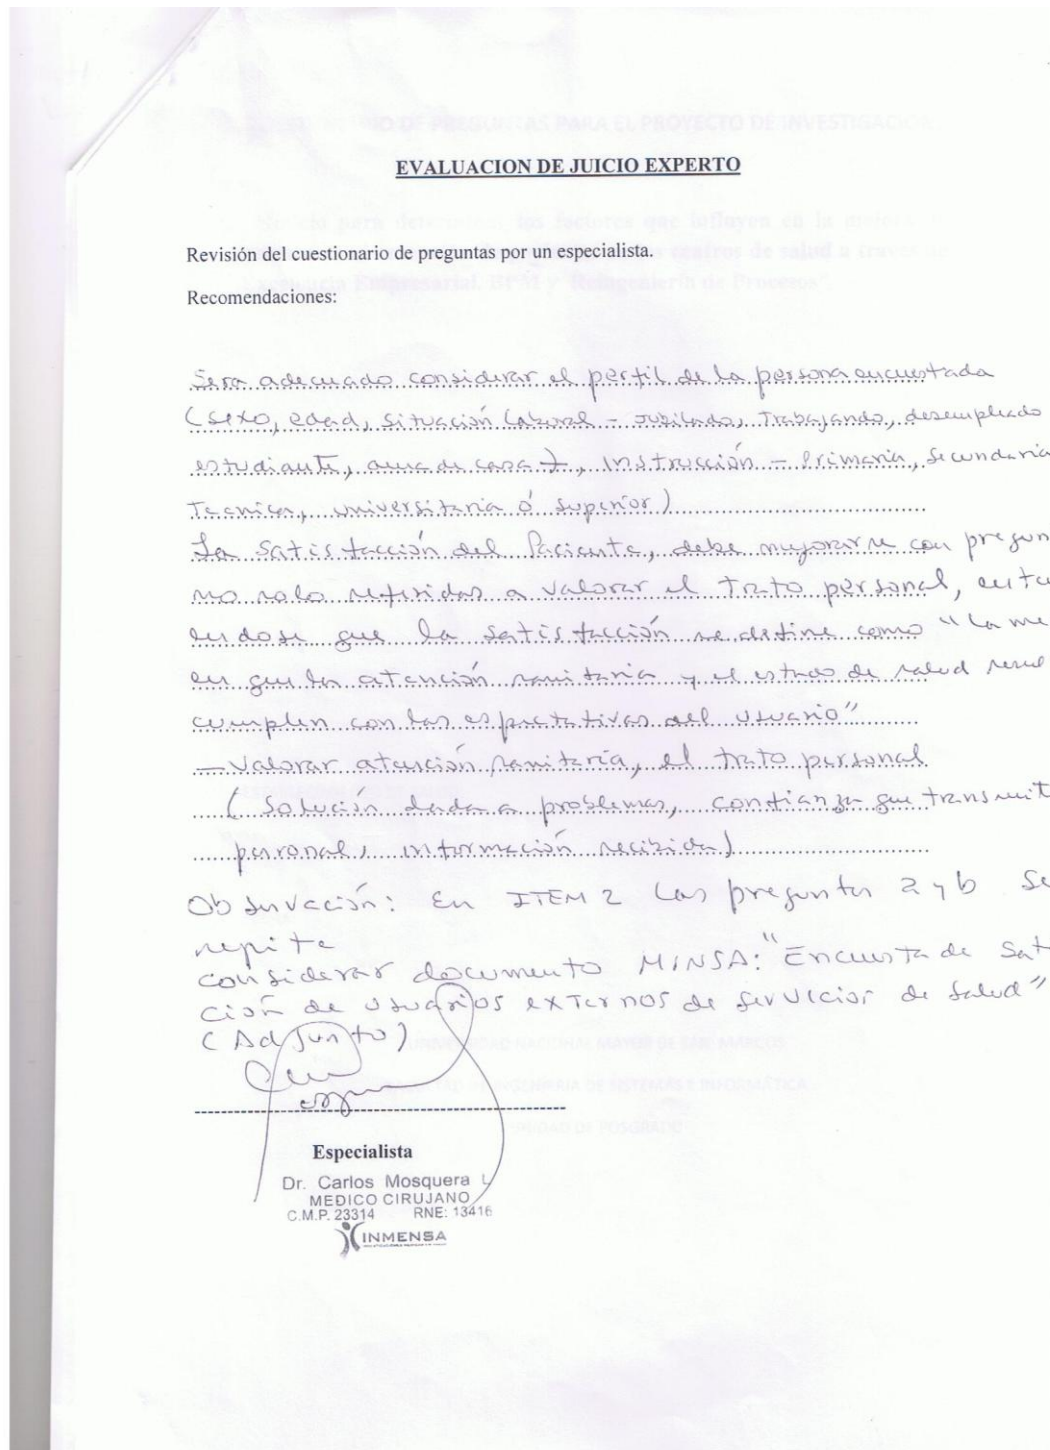 EVALUACION DE JUICIO EXPERTO
Revisión del cuestionario de preguntas por un especialista.
Recomendaciones:
Sera adecuado considerar el perfil de la persona encuestada
(sexo, edad, situación laboral - Jubilado, Trabajando, desempleado
estudiante, ama de casa), Instrucción - Primaria, Secundaria
Tecnica, universitaria ó superior)
La Satisfacción del Paciente, debe mejorarse con pregun
no solo referidas a valorar el trato personal,
que la satisfacción se define como "La me
en que la atención sanitaria y el estado de salud
cumplen con las espectativas del usuario"
- Valorar atención sanitaria, el trato personal
(Solución dada a problemas, confianza que transmit
personal, información recibida)
Observación: En ITEM 2 Las preguntas a y b Se
repite
considerar documento MINSA: "Encuesta de Sat
ción de usuarios externos de servicios de Salud"
(Adjunto)
Especialista
Dr. Carlos Mosquera L
MEDICO CIRUJANO
C.M.P. 23314 RNE: 13416
INMENSA